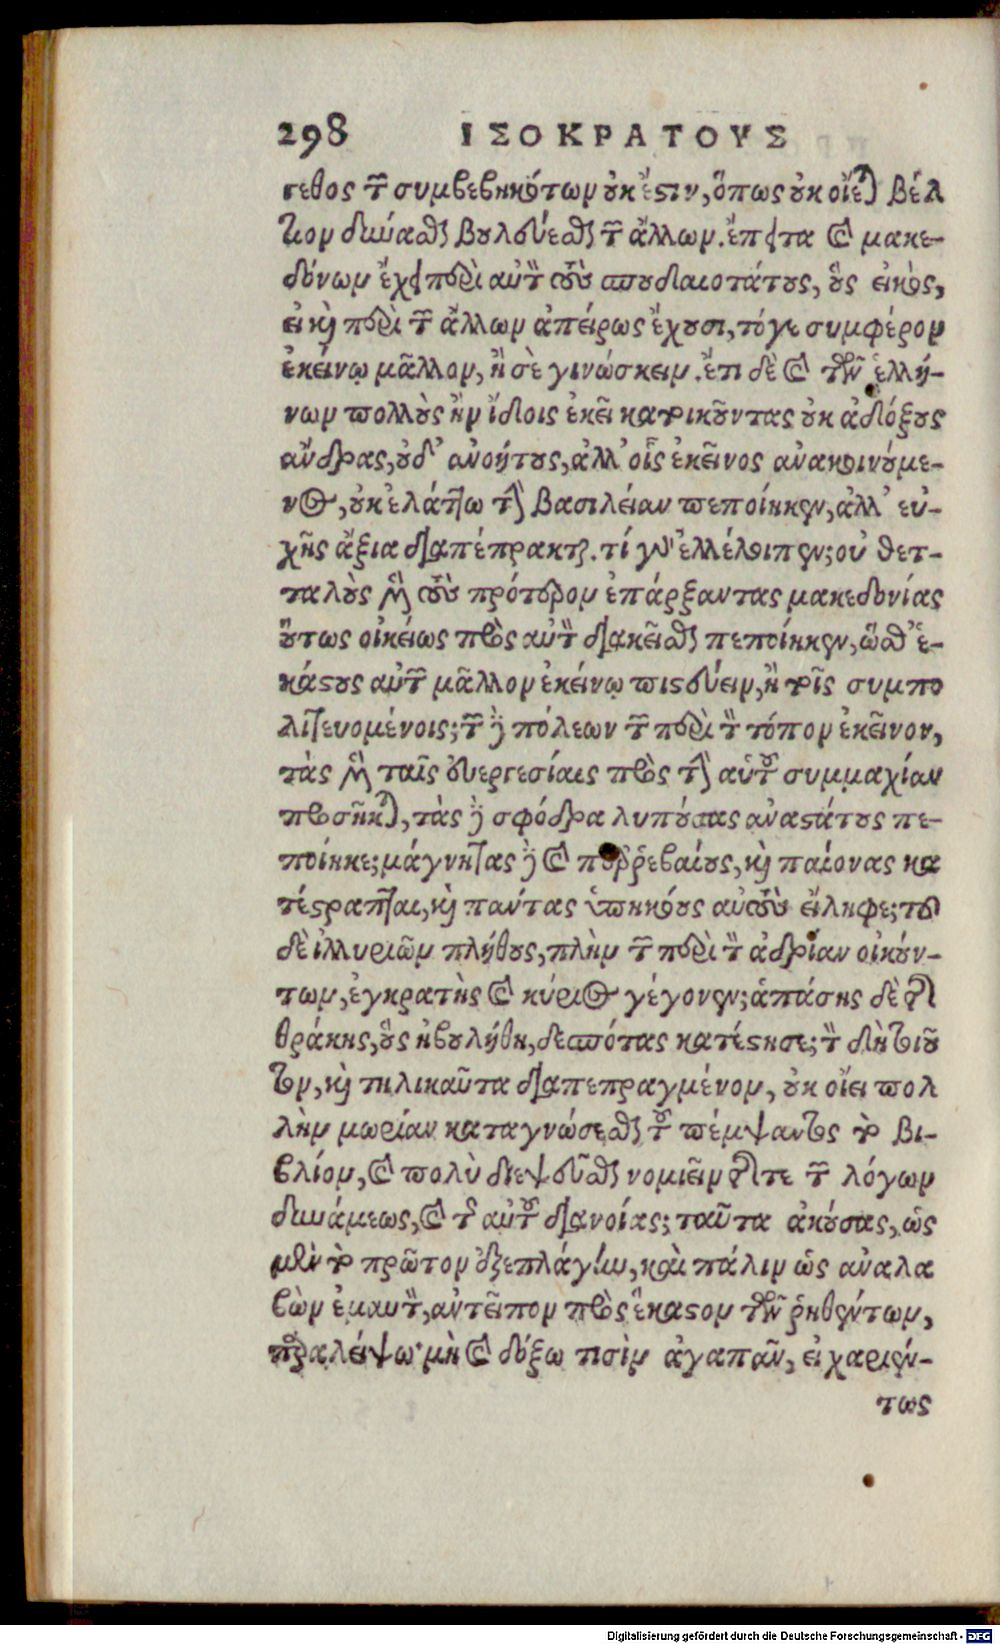 298 ΙΣΟΚΡΑΤΟΥΣ
γεθος τῶν συμβεβηκότων οὐκ ἔστιν, ὅπως οὐκ οἴεται βέλ
τιον δύνασθαι βουλεύεσθαι τῶν ἄλλων. ἔπειτα καὶ μακε-
δόνων ἔχει περὶ αὑτὸν τοὺς σπουδαιοτάτους, οὓς εἰκὸς,
εἰ καὶ περὶ τῶν ἄλλων ἀπείρως ἔχουσι, τόγε συμφέρον
ἐκείνῳ μᾶλλον, ἢ σὲ γινώσκειν. ἔτι δὲ καὶ τῶν ἑλλή-
νων πολλοὺς ἂν ἴδοις ἐκεῖ κατοικοῦντας οὐκ ἀδόξους
ἄνδρας, οὐδ' ἀνοήτους, ἀλλ' οἷς ἐκεῖνος ἀνακοινούμε-
νος, οὐκ ἐλάττω τὴν βασιλείαν πεποίηκεν, ἀλλ' εὐ-
χῆς ἄξια διαπέπρακται. τί γὰρ ἐλλέλοιπεν; οὐ θετ-
ταλοὺς μὲν τοὺς πρότερον ἐπάρξαντας μακεδονίας
οὕτως οἰκείως πρὸς αὑτὸν διακεῖσθαι πεποίηκεν, ὥσθ' ἑ-
κάστους αὐτῶν μᾶλλον ἐκείνῳ πιστεύειν, ἢ τοῖς συμπο
λιτευομένοις; τῶν δὲ πόλεων τῶν περὶ τὸν τόπον ἐκεῖνον,
τὰς μὲν ταῖς εὐεργεσίαις πρὸς τὴν αὑτοῦ συμμαχίαν
προσῆκται, τὰς δὲ σφόδρα λυπούσας ἀναστάτους πε-
ποίηκε; μάγνητας δὲ καὶ περῤῥεβαίους, καὶ παίονας κα
τέστραπται, καὶ πάντας ὑπηκόους αὐτοὺς εἴληφε; τοῦ
δὲ ἰλλυριῶν πλήθους, πλὴν τῶν περὶ τὸν ἀδρίαν οἰκούν-
των, ἐγκρατὴς καὶ κύριος γέγονεν; ἁπάσης δὲ τῆς
θράκης, οὓς ἠβουλήθη, δεσπότας κατέστησε; τὸν δὴ τοιοῦ
τον, καὶ τηλικαῦτα διαπεπραγμένον, οὐκ οἴει πολ
λὴν μωρίαν καταγνώσεσθαι τοῦ πέμψαντος τὸ βι-
βλίον, καὶ πολὺ διεψεῦσθαι νομιεῖν τῆς τε τῶν λόγων
δυνάμεως, καὶ τῆς αὑτοῦ διανοίας; ταῦτα ἀκούσας, ὡς
μὲν τὸ πρῶτον ἐξεπλάγην, καὶ πάλιν ὡς ἀναλα
βὼν ἐμαυτὸν, ἀντεῖπον πρὸς ἕκαστον τῶν ῥηθέντων,
παραλείψω· μὴ καὶ δόξω τισὶν ἀγαπᾶν, εἰ χαριέν-
τως
Digitalisierung gefördert durch die Deutsche Forschungsgemeinschaft - DFG